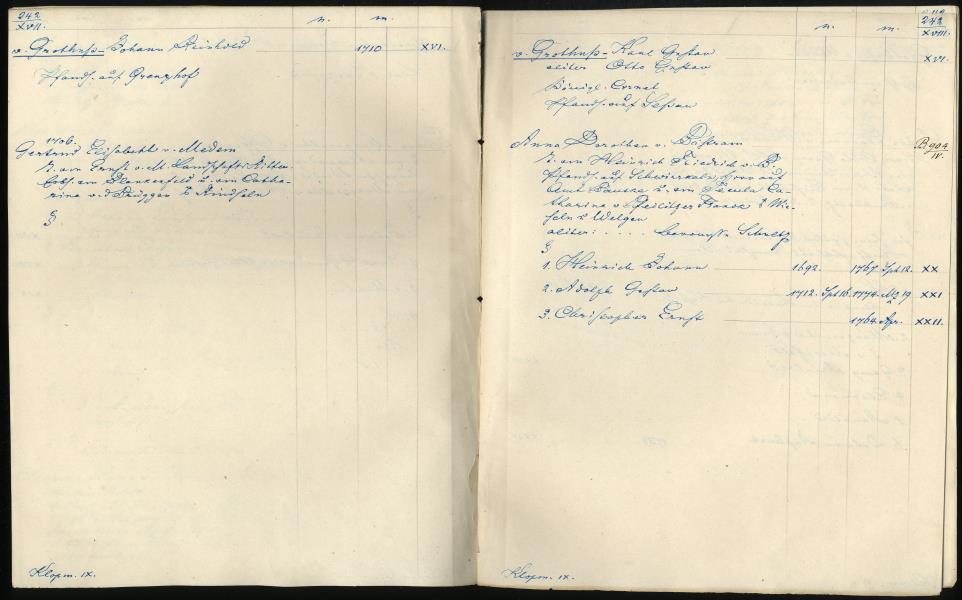 242
XVII.
n. m.
v. Grothuß - Johann Reinhold 1710 XVI.
Pfandh. auf Grenzhof
1706.
Gertrud Elisabeth v. Medem
T. v. Ernst v. M. Landschafts-Ritter
auf Blankenfeld u. v. Catha-
rina v. d. Brüggen a. Kindseln
§
Klopm. IX.
242
XVIII.
n. m.
v. Grothuß - Karl Gustav XVI.
aliter Otto Gustav
Königl. Cornet
Pfandh. auf Sessau
Anna Dorothea v. Bistram B 904
IV.
T. v. Heinrich Friedrich v. B.
Pfandh. auf Schwirrkaln, Herr auf
u. v. Ca-
tharina v. Franck
u. Welgen
aliter: . . . . Schultz
§
1. Heinrich Johann 1692. 1767. Spt 12. XX
2. Adolph Gustav 1712. Spt 16. 1774. Mz 19 XXI
3. Christopher Ernst 1764. Apr. XXII.
Klopm. IX.